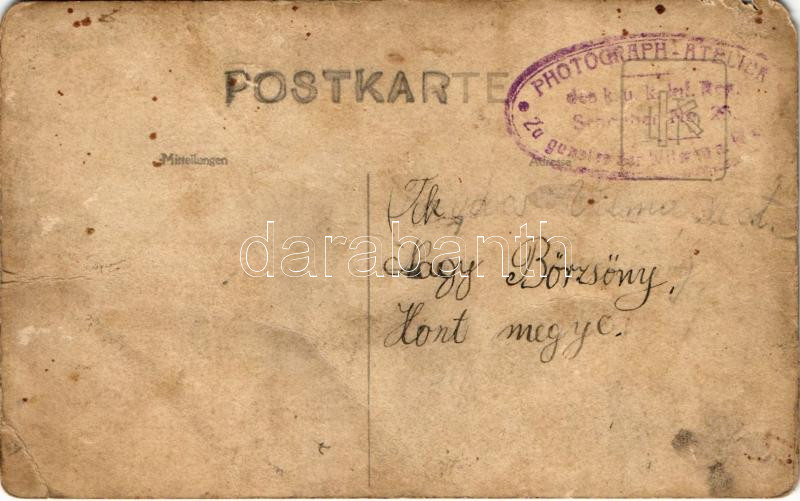 POSTKARTE
PHOTOGRAPH-ATELIER
des k. u. k. Inf. Reg.
No. 25
zu gunsten der
Mitteilungen
Adresse
Tek.
Nagy Börzsöny.
Hont megye.
darabanth